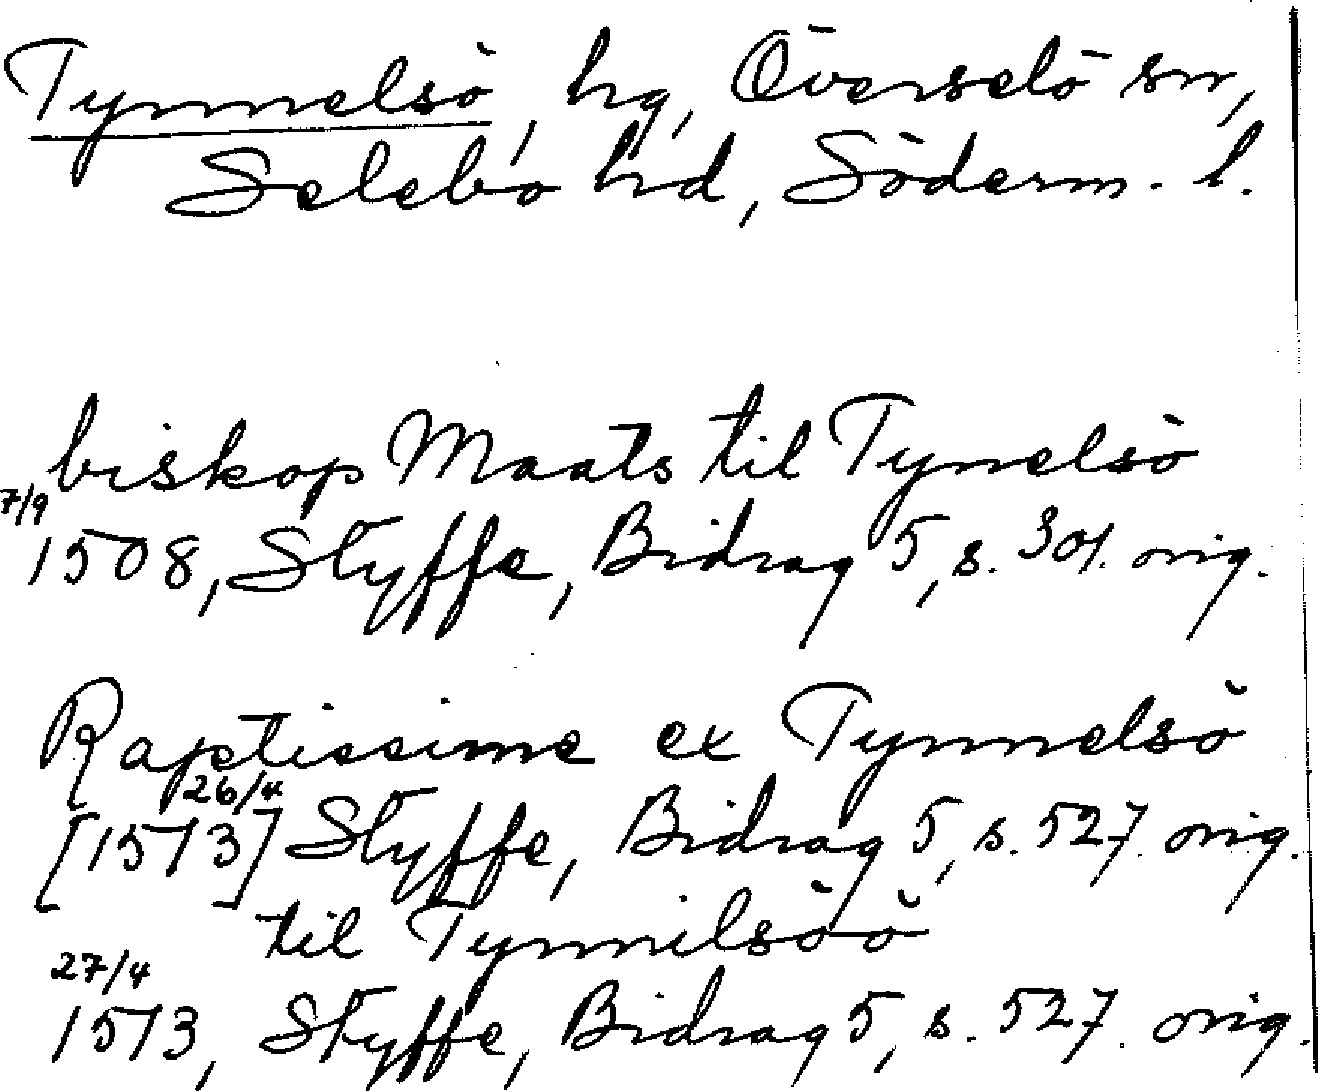 Tynnelsö, hg, Överselö sn,
Selebo hd, Söderm. l.
biskop Maats til Tynelsö
7/9
1508, Styffe, Bidrag 5, s. 301. orig.
Raptissime ex Tynnelsö
26/4
[1513] Styffe, Bidrag 5, s. 527. orig.
til Tynnilsöö
27/4
1513, Styffe, Bidrag 5, s. 527. orig.